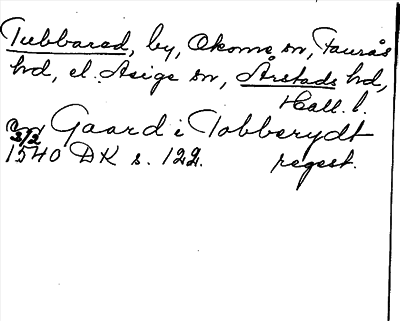 Tubbared, by, Okome sn, Faurås
hd, el. Asige sn, Årstads hd,
Hall. l.
Gaard i Tobberydt
3/2
1540 DK s. 122. regest.